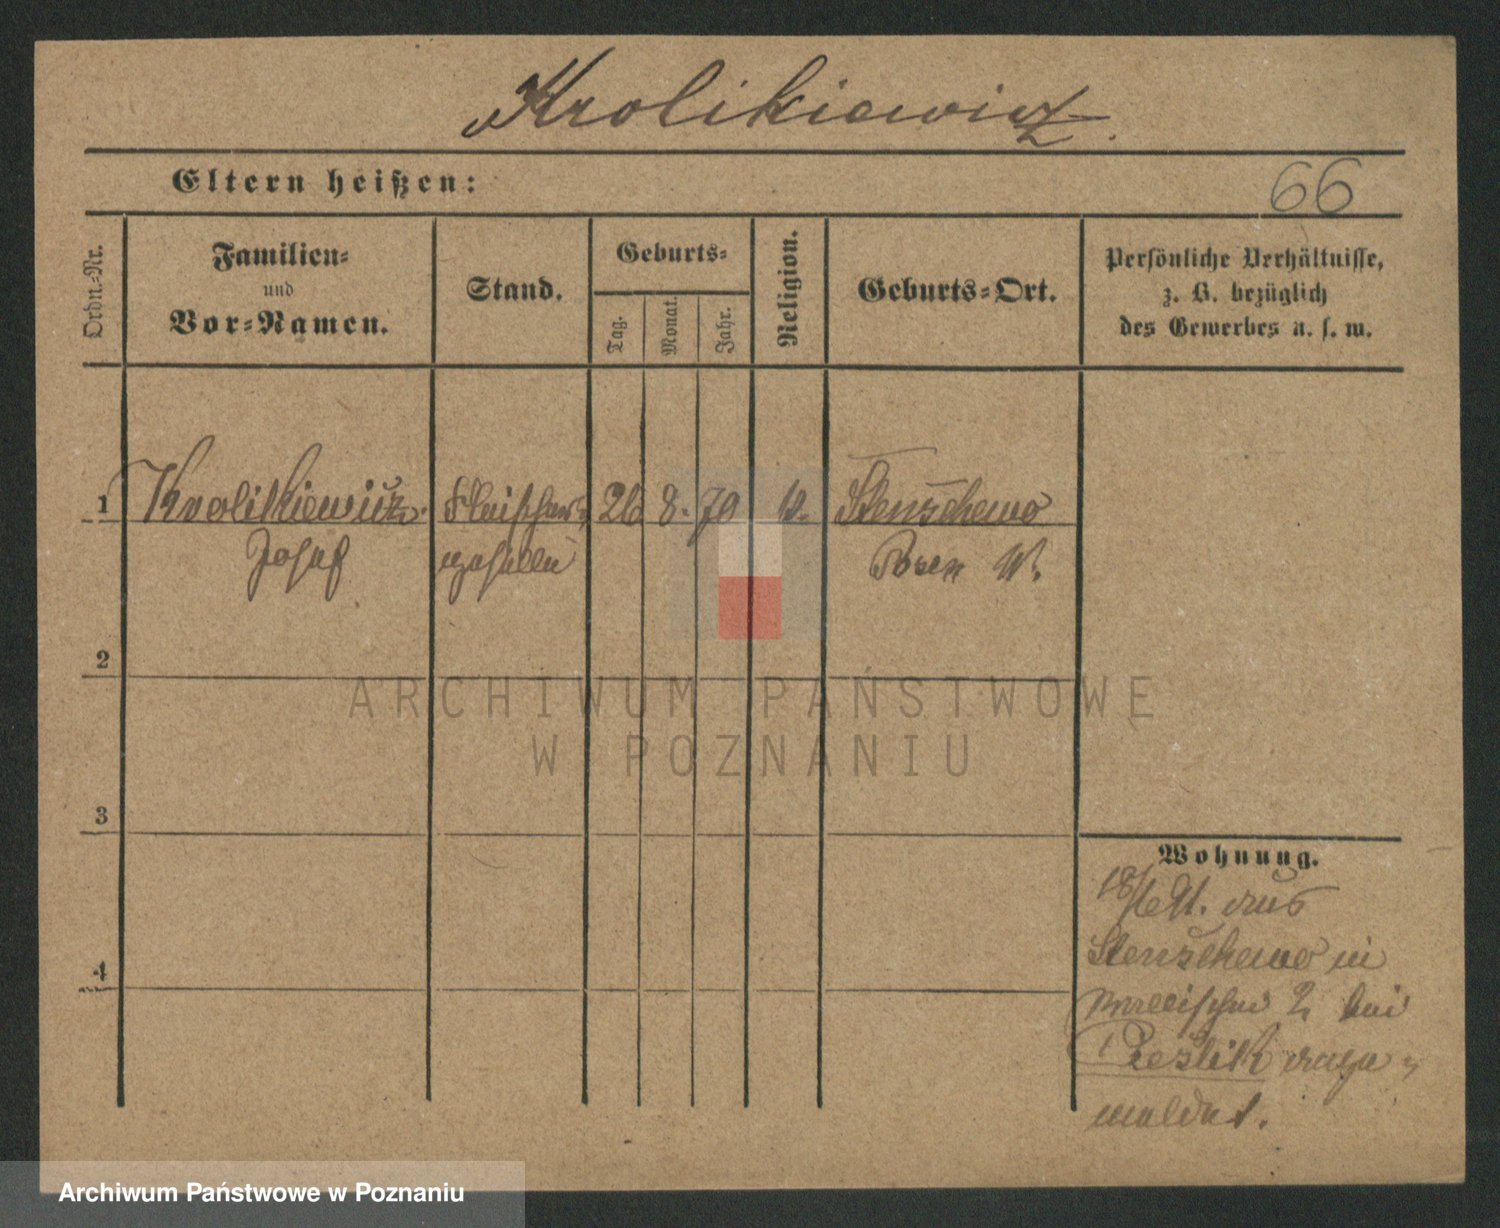 Krolikiewicz
Eltern heißen:
66
Ordn.-Nr.
Familien-
und
Vor-Namen.
Stand.
Geburts-
Tag.
Monat.
Jahr.
Religion.
Geburts-Ort.
Persönliche Verhältnisse,
z. B. bezüglich
des Gewerbes u. s. w.
1
Krolikiewicz
Josef
Fleischer-
gesellen
26
8.
70
k.
Stenschewo
Posen W.
2
3
4
ARCHIWUM PAŃSTWOWE
W POZNANIU
Wohnung.
18/ aus
Stenschewo in
Wallischei 2 bei
Cieslik ange-
meldet.
Archiwum Państwowe w Poznaniu